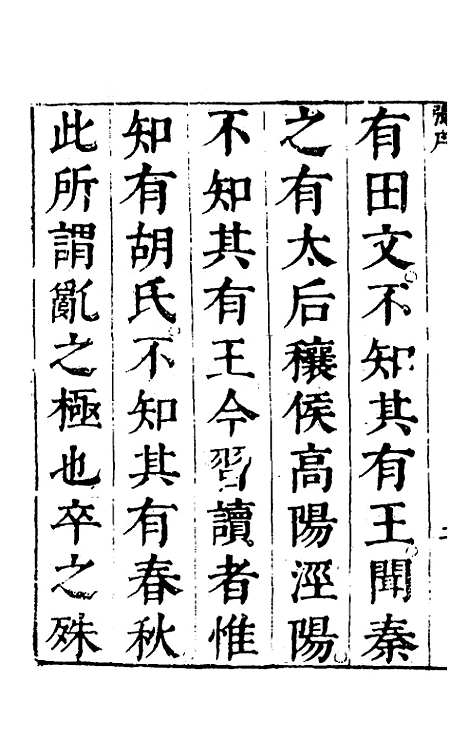 張序
有田文不知其有王聞秦
之有太后穰侯高陽涇陽
不知其有王今習讀者惟
知有胡氏不知其有春秋
此所謂亂之極也卒之殊
二